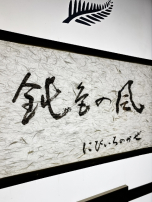 鈍色の風
にびいろのかぜ